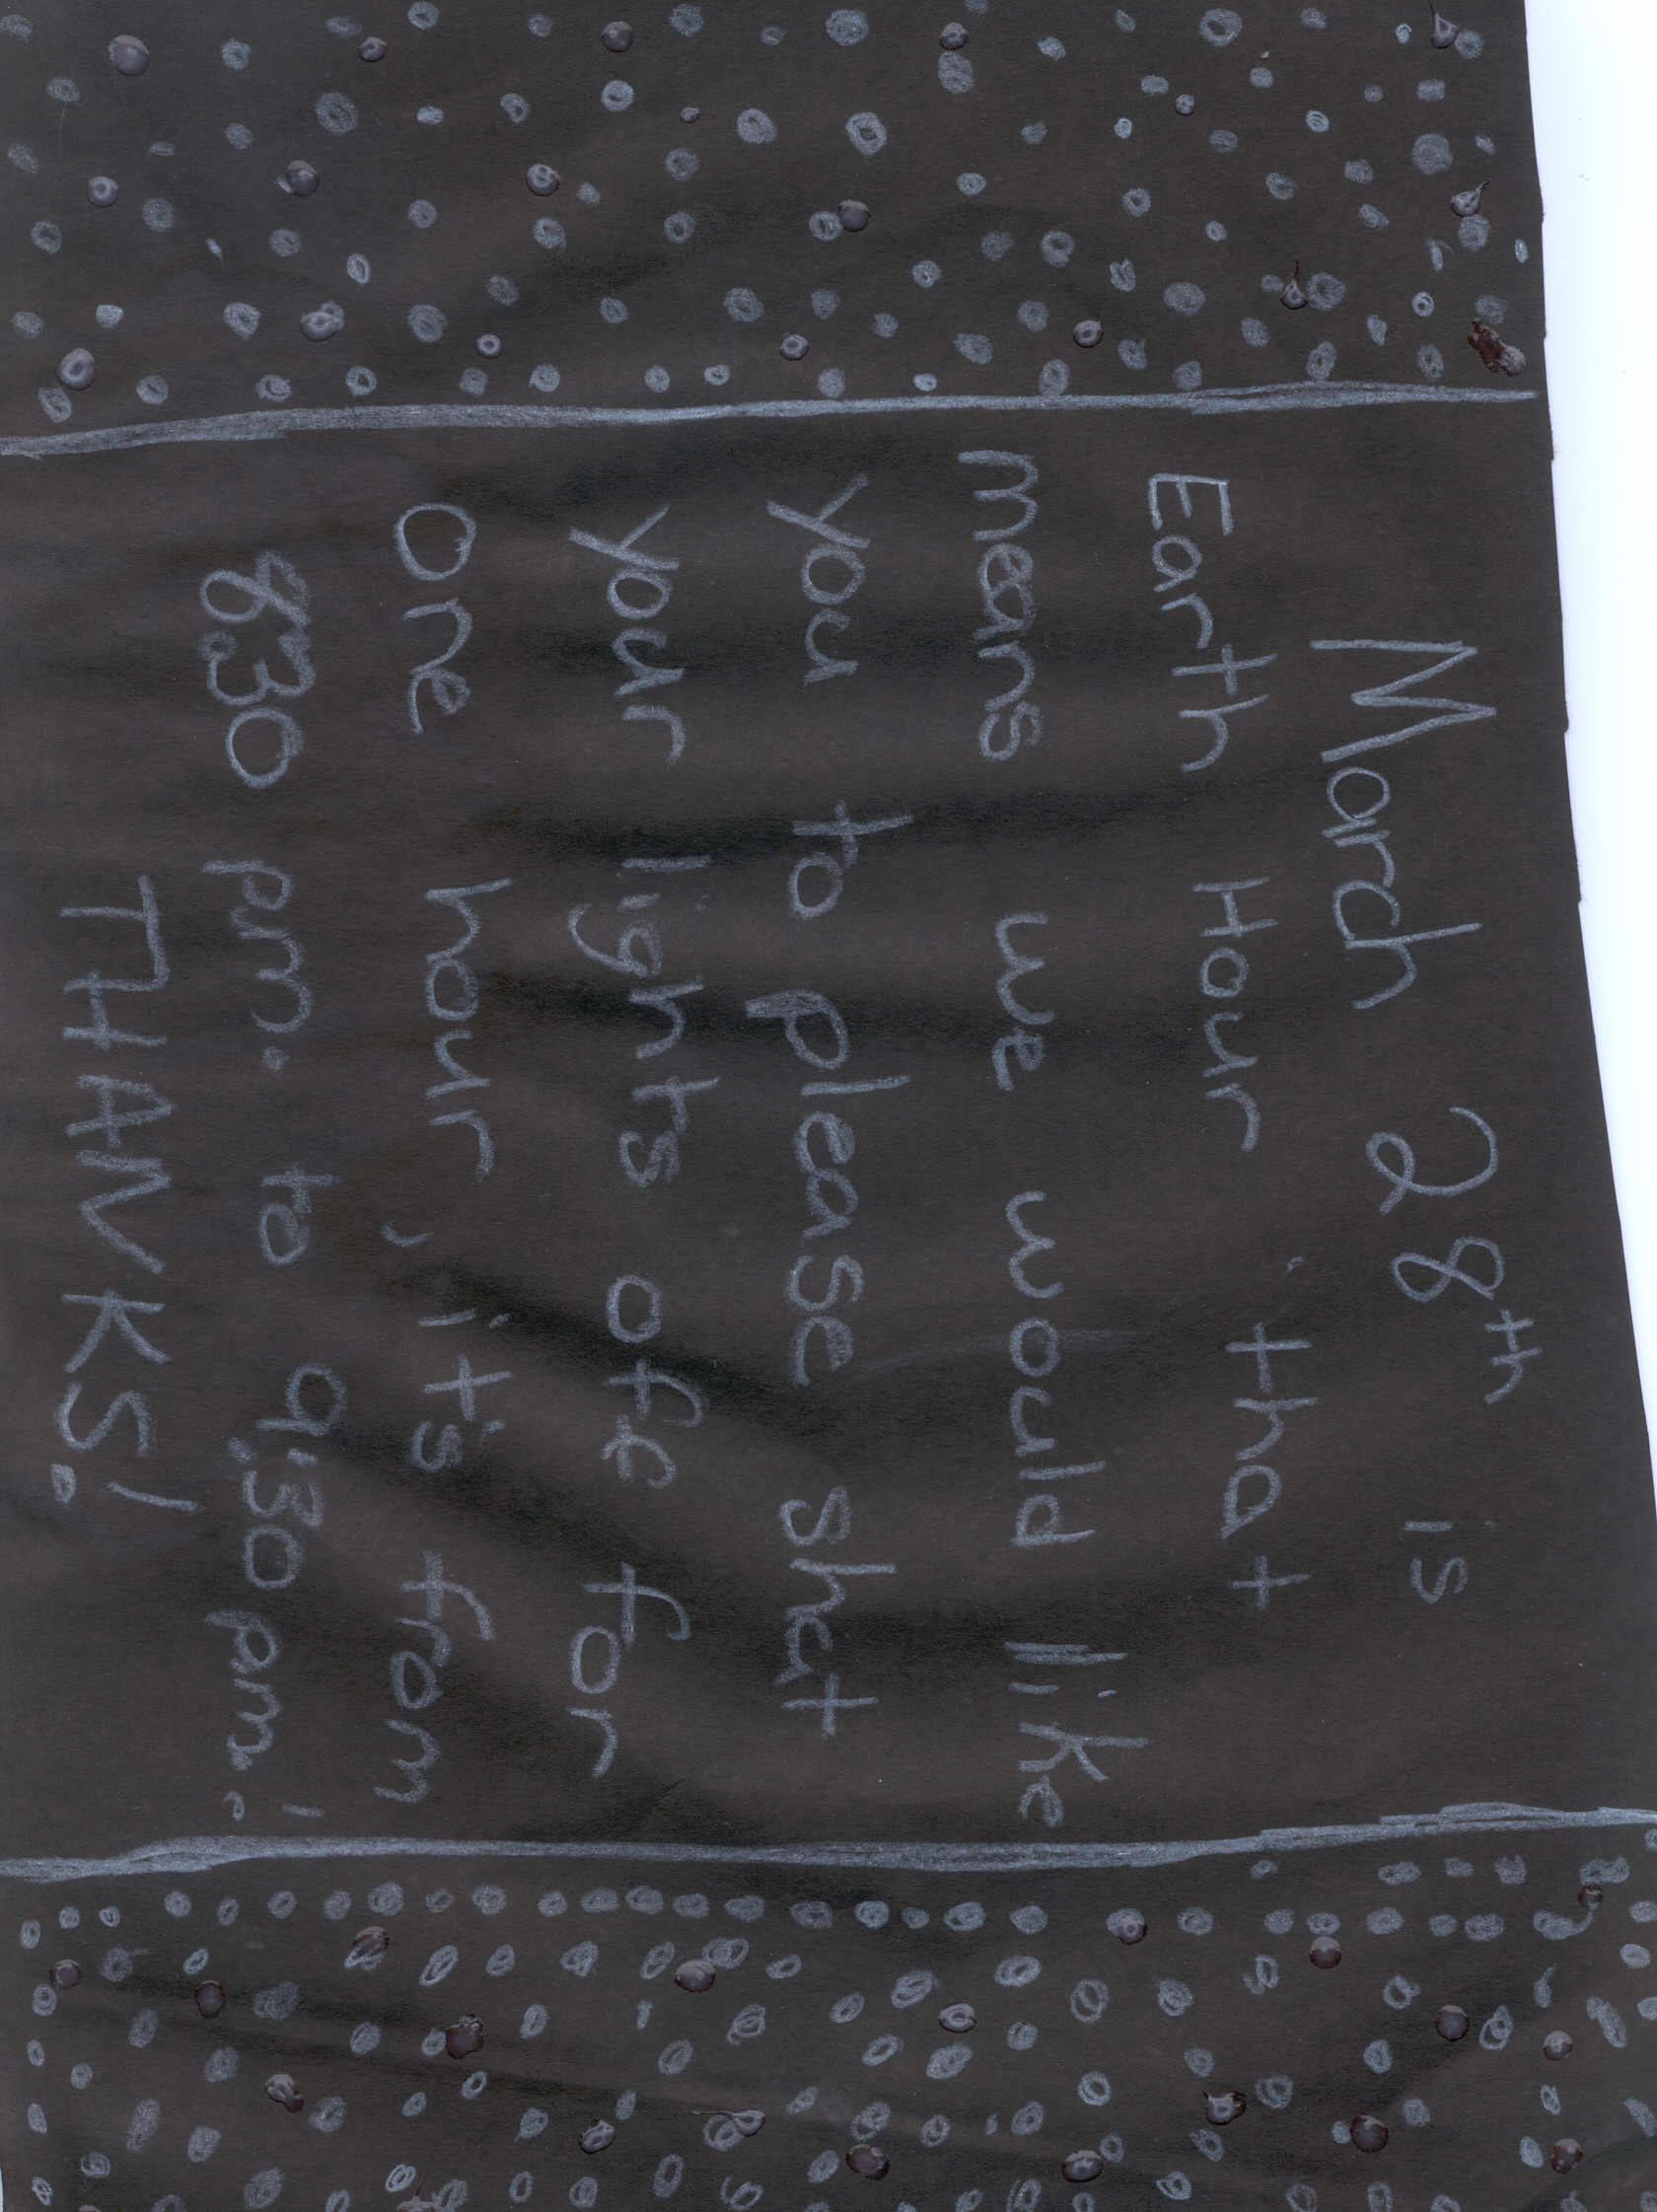 March 28th is
Earth Hour that
means we would like
you to please shut
your lights off for
one hour, it's from
8:30 pm. to 9:30 pm.!
THANKS!